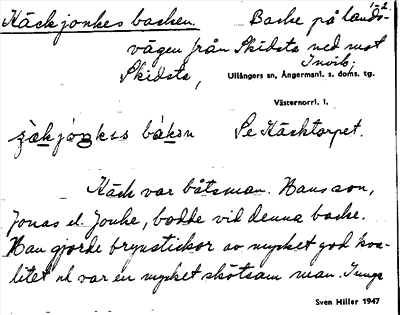 Käckjonkes backen. Backe på lands- 1-2
vägen från Skidsta ned mot
Skidsta, Invik;
Ullångers sn, Ångermanl. s. doms. tg.
Västernorrl. l.
Se Käcktorpet.
Käck var båtsman. Hans son,
Jonas el. Jonke, bodde vid denna backe.
Han gjorde brynstickor av mycket god kva-
litet och var en mycket skötsam man. Inga
Sven Hiller 1947